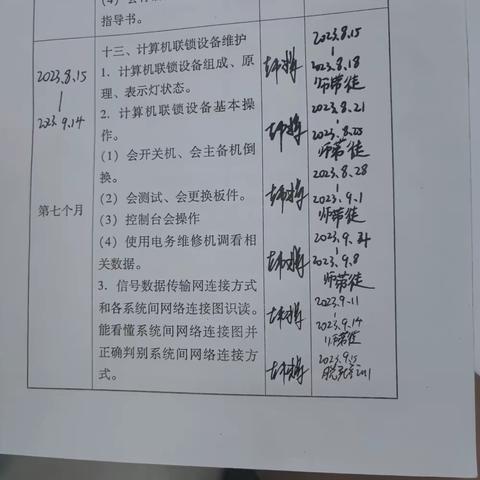 指导书。
2023.8.15
2023.9.14
第七个月
十三、计算机联锁设备维护
1. 计算机联锁设备组成、原
理、表示灯状态。
2. 计算机联锁设备基本操
作。
(1) 会开关机、会主备机倒
换。
(2) 会测试、会更换板件。
(3) 控制台会操作
(4) 使用电务维修机调看相
关数据。
3. 信号数据传输网连接方式
和各系统间网络连接图识读。
能看懂系统间网络连接图并
正确判别系统间网络连接方
式。
2023.8.15
2023.8.18
师带徒
2023.8.21
2023.8.25
师带徒
2023.8.28
2023.9.1
师带徒
2023.9.8
师带徒
2023.9.11
2023.9.14
师带徒
2023.9.15